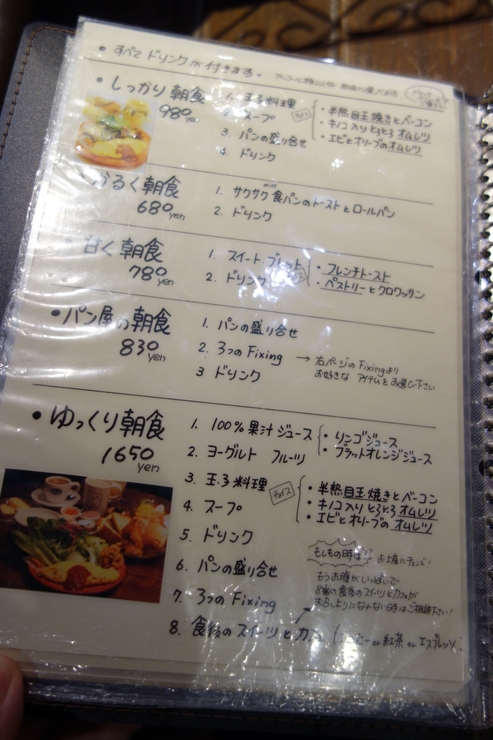 ・すべてドリンクが付きます。
・しっかり朝食
980
1. 玉子料理
2. スープ
3. パンの盛り合せ
4. ドリンク
・半熟目玉焼きとベーコン
・キノコ入りとろとろオムレツ
・エビとオリーブのオムレツ
かるく朝食
680 yen
1. サクサク食パンのトーストとロールパン
2. ドリンク
・甘く朝食
780 yen
1. スイート・ブレット
2. ドリンク
・フレンチトースト
・ペストリーとクロワッサン
・パン屋の朝食
830 yen
1. パンの盛り合せ
2. 3つのFixing
3 ドリンク
→ 右ページのFixingより
お好きな アイテムをお選び下さい
・ゆっくり朝食
1650 yen
1. 100%果汁ジュース
2. ヨーグルト フルーツ
3. 玉子料理
4. スープ
5. ドリンク
6. パンの盛り合せ
7. 3つのFixing
8. 食後のスイーツとカフェ
・リンゴジュース
・ブラッドオレンジジュース
チョイス
・半熟目玉焼きとベーコン
・キノコ入りとろとろオムレツ
・エビとオリーブのオムレツ
もしもの時は!!
もうお腹がいっぱいで
8番の食後のスイーツとカフェが
お召し上りになれない時はご相談下さい!
or 紅茶 or エスプレッソ)